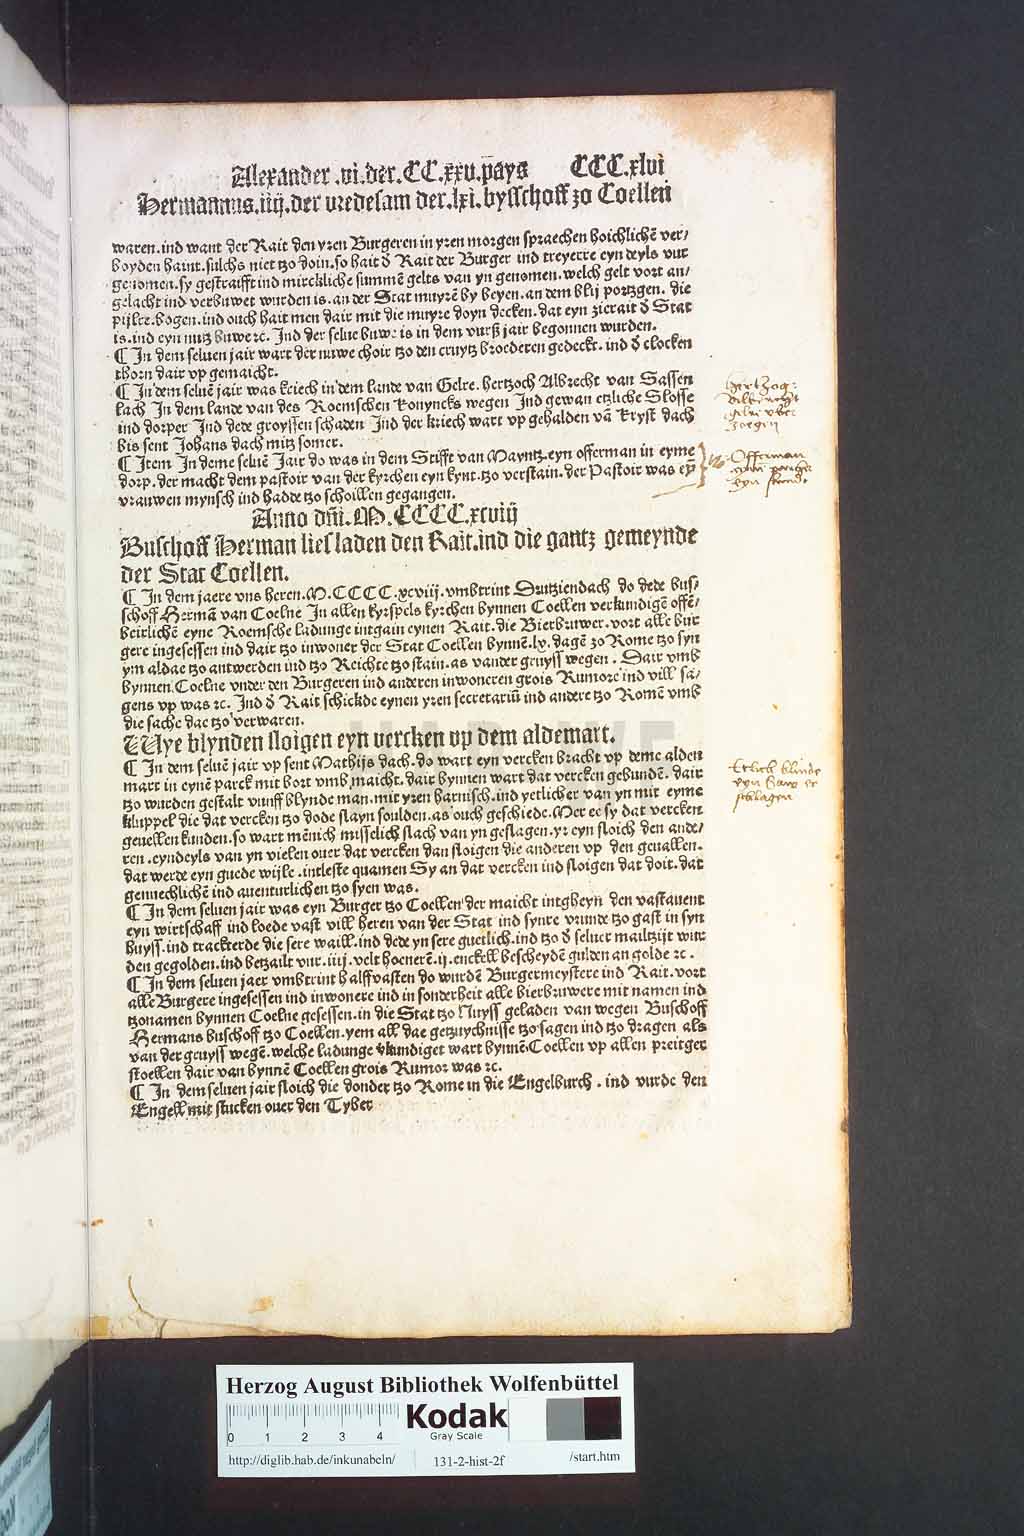 Alexander .vi.der.CC.xxv.pays CCC.xlvi
Hermannus.iiij.der vredesam der.lxi.bysschoff zo Coellen
waren.ind want der Rait den yren Burgeren in yren morgen spraechen hoichlichē ver/
boyden haint.sulchs niet tzo doin.so hait d Rait der Burger ind treyerre eyn deyls vur
genomen.sy gestraifft ind mirckliche summē gelts van yn genomen.welch gelt vort an/
gelacht ind verbuwet wurden is.an der Stat muyrē by beyen.an dem blij portzgen. die
pijlre.bogen.ind ouch hait men dair mit die muyre doyn decken.dat eyn zierait d Stat
is.ind eyn nutz buwe ⁊c. Ind der selue buwe is in dem vurß jair begonnen wurden.
¶ In dem seluen jair wart der nuwe choir tzo den cruytz broederen gedeckt.ind d clocken
thorn dair vp gemaicht.
¶ In dem seluē jair was kriech in dem lande van Gelre.hertzoch Albrecht van Sassen
lach In dem lande van des Roemschen Konyncks wegen Ind gewan etzliche Slosse
ind dorper Ind dede groyssen schaden Ind der kriech wart vp gehalden vā Kryst dach
bis sent Johans dach mitz somer.
¶ Item In deme seluē Jair do was in dem Stifft van Mayntz.eyn offerman in eyme
dorp.der macht dem pastoir van der kyrchen eyn kynt.tzo verstain.der Pastoir was eyn
vrauwen mynsch ind hadde tzo schoillen gegangen.
Anno dñi.M.CCCC.xcviij
Buschoff Herman lies laden den Rait.ind die gantz gemeynde
der Stat Coellen.
¶ In dem jaere vns heren.M.CCCC.xcviij.vmbtrint Druitziendach do dede bus/
schoff Hermā van Coelne In allen kyrspels kyrchen bynnen Coellen verkundigē offē/
beirlichē eyne Roemsche ladunge intgain eynen Rait.die Bierbruwer.vort alle bur
gere ingesessen ind dair tzo inwoner der Stat Coellen bynnē.lv.dagē zo Rome tzo syn
ym aldae tzo antwerden ind tzo Reichte tzo stain.as vander gruyss wegen. Dair vmb
bynnen Coelne vnder den Burgeren ind anderen inwoneren grois Rumore ind vill sa/
gens vp was ⁊c. Ind d Rait schickde eynen yren secretariū ind andere tzo Romē vmb
die sache dae tzo verwaren.
Wye blynden sloigen eyn vercken vp dem aldemart.
¶ In dem seluē jair vp sent Mathijs dach.do wart eyn vercken bracht vp deme alden
mart in eynē parck mit bort vmb maicht.dair bynnen wart dat vercken gebundē.dair
tzo wurden gestalt vunff blynde man.mit yren harnisch.ind yetlicher van yn mit eyme
kluppel die dat vercken tzo dode slayn soulden.as ouch geschiede.Mer ee sy dat vercken
geuellen kunden.so wart mēnich misselich slach van yn geslagen.yr eyn sloich den ande/
ren.eyndeyls van yn vielen ouer dat vercken dan sloigen die anderen vp den geuallen.
dat werde eyn guede wijle.intleste quamen Sy an dat vercken ind sloigen dat doit.dat
genuechlichē ind auenturlichen tzo syen was.
¶ In dem seluen jair was eyn Burger tzo Coellen der maicht intgheyn den vastauent
eyn wirtschaff ind loede vast vill heren van der Stat ind synre vrunde tzo gast in syn
huyss.ind trackterde die sere waill.ind dede yn sere guetlich.ind tzo d seluer mailtzijt wur
den gegolden.ind betzailt vur.iiij.velt hoenerē.ij.enckell bescheydē gulden an golde ⁊c.
¶ In dem seluen jaer vmbtrint halffvasten do wurdē Burgermeystere ind Rait.vort
alle Burgere ingesessen ind inwonere ind in sonderheit alle bierbruwere mit namen ind
tzonamen bynnen Coelne gesessen.in die Stat tzo Nuyss geladen van wegen Buschoff
Hermans buschoff tzo Coellen.yem all dae getzuychnisse tzo sagen ind tzo dragen als
van der gruyss wegē.welche ladunge vkundiget wart bynnē Coellen vp allen preitger
stoellen dair van bynnē Coellen grois Rumor was ⁊c.
¶ In dem seluen jair sloich die donder tzo Rome in die Engelburch. ind vurde den
Engell mit stucken ouer den Tyber
Hertzog
Offerman
Etlich blinde
eyn Saw er
schlagen
Herzog August Bibliothek Wolfenbüttel
0 1 2 3 4
Kodak
Gray Scale
http://diglib.hab.de/inkunabeln/ 131-2-hist-2f /start.htm